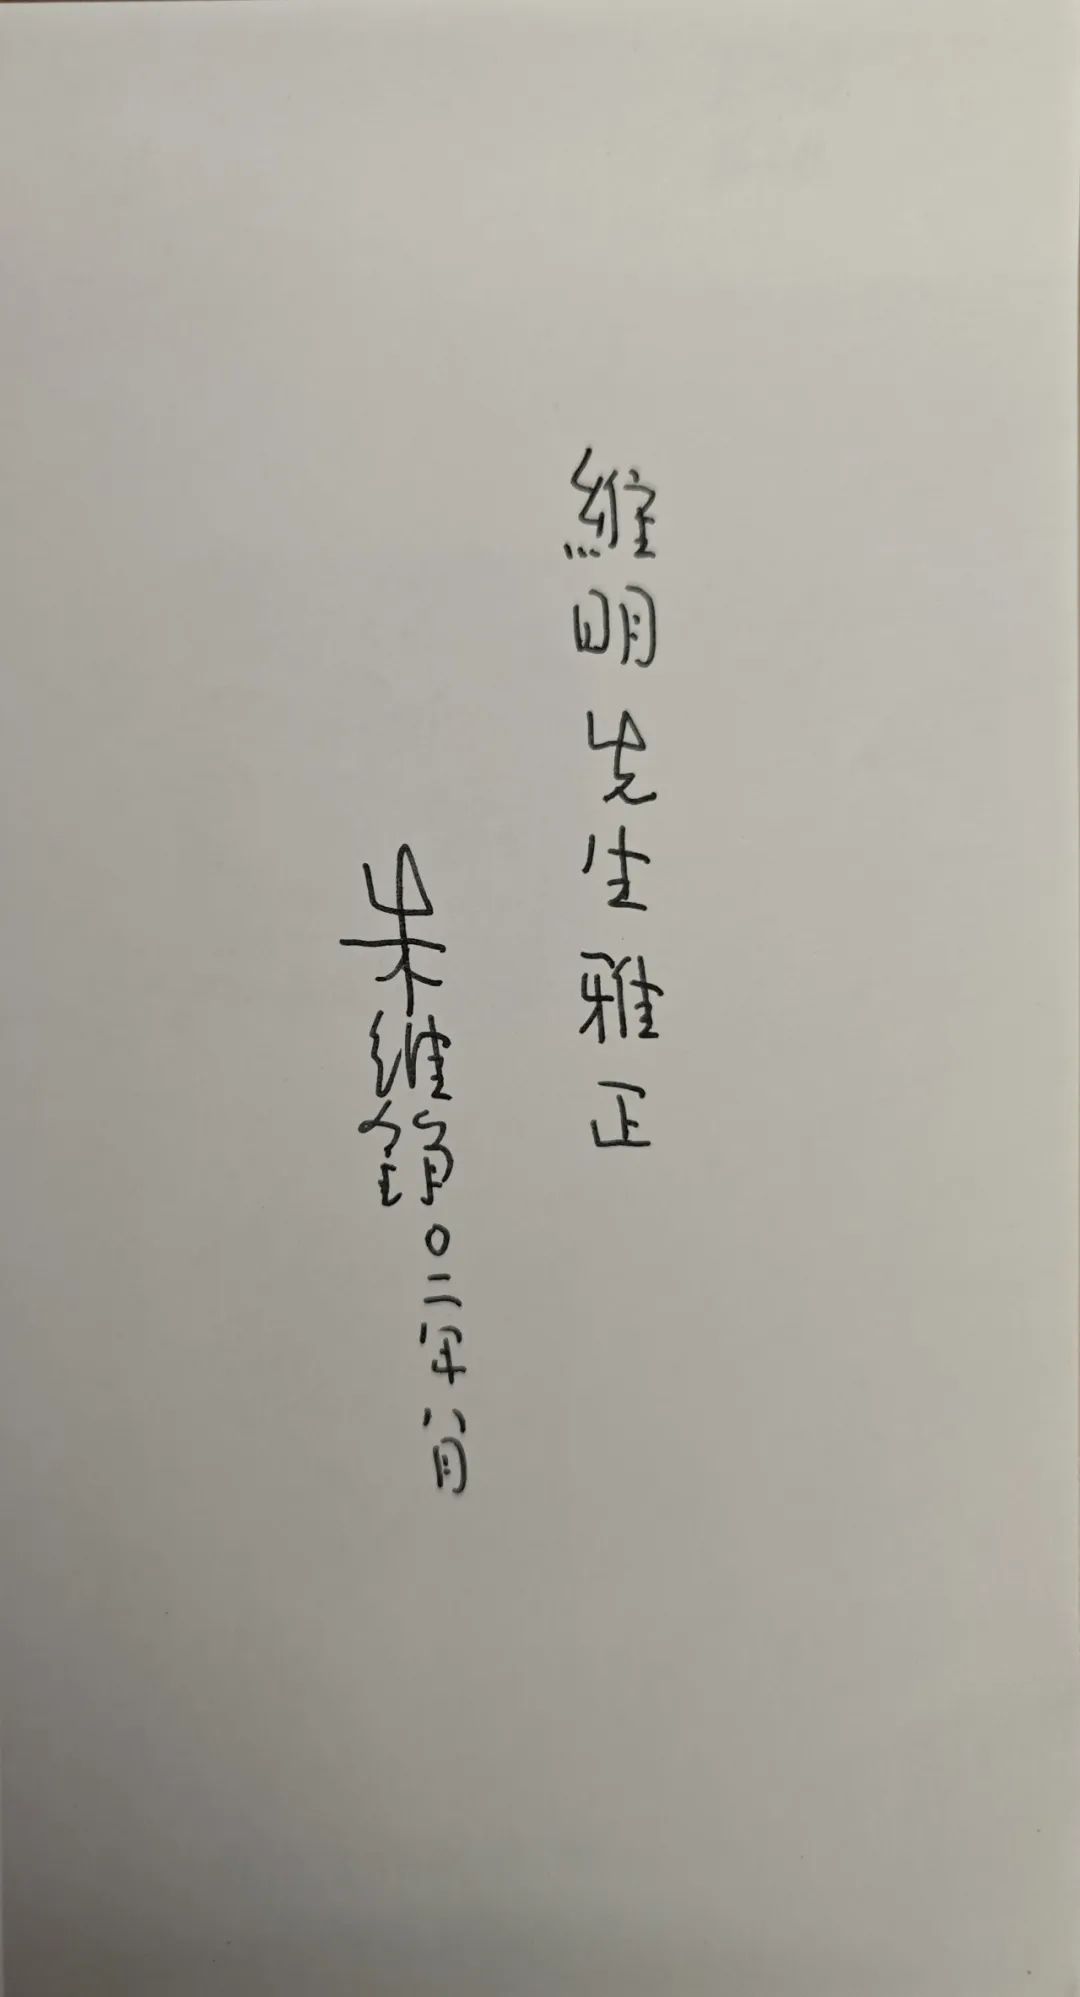 維明先生雅正
朱維錚
〇二年八月